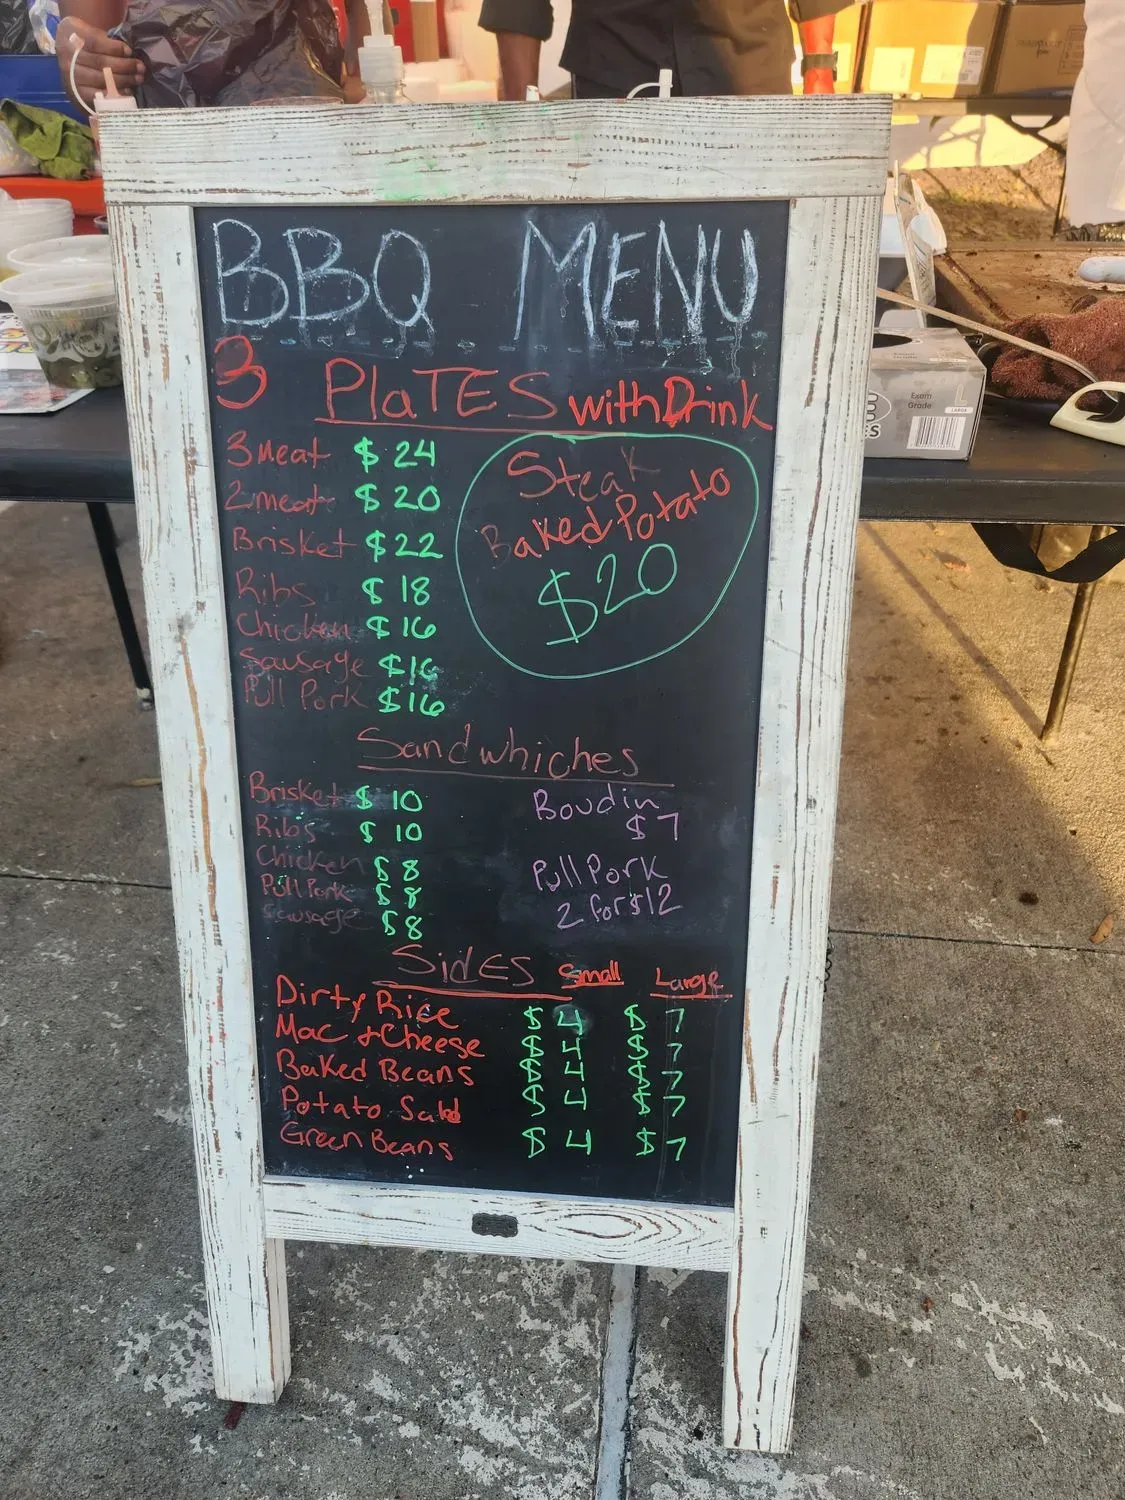 BBQ MENU
3 PlaTES with Drink
3 meat $ 24
2 meat $ 20
Brisket $ 22
Ribs $ 18
Chicken $ 16
Sausage $ 16
Pull Pork $ 16
Steak
Baked Potato
$20
Sandwhiches
Brisket $ 10
Ribs $ 10
Chicken $ 8
Pull Pork $ 8
Sausage $ 8
Boudin
$ 7
Pull Pork
2 for $12
SidES Small Large
Dirty Rice $ 4 $ 7
Mac & Cheese $ 4 $ 7
Baked Beans $ 4 $ 7
Potato Salad $ 4 $ 7
Green Beans $ 4 $ 7
Exam
Grade
L
LARGE